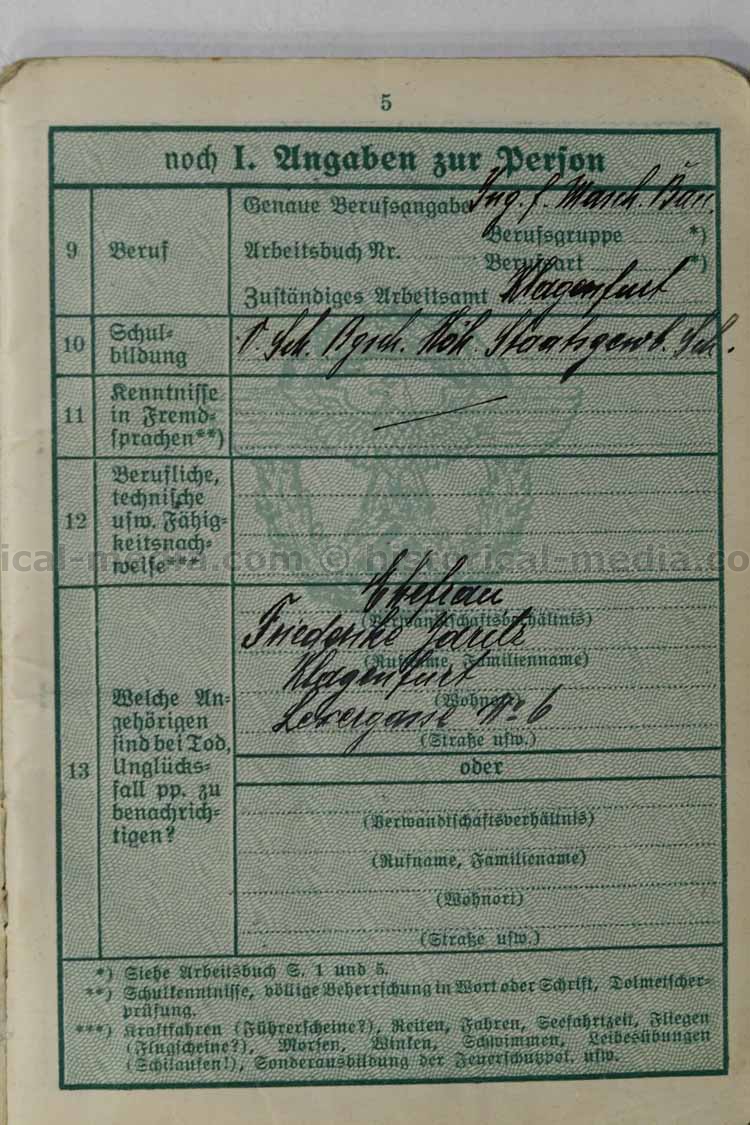 5
noch I. Angaben zur Person
9
Beruf
Genaue Berufsangabe Ing. f. Masch. Bau.
Berufsgruppe *)
Arbeitsbuch Nr.
Berufsart *)
Zuständiges Arbeitsamt Klagenfurt
10
Schul-
bildung
V. Sch. Bgsch. Höh. Staatsgewb. Sch.
11
Kenntnisse
in Fremd-
sprachen**)
12
Berufliche,
technische
usw. Fähig-
keitsnach-
weise***
historical-media.com © historical-media.com
13
Welche An-
gehörigen
sind bei Tod,
Unglücks-
fall pp. zu
benachrich-
tigen?
Ehefrau
(Verwandtschaftsverhältnis)
Friederike
(Rufname, Familienname)
Klagenfurt
(Wohnort)
No 6
(Straße usw.)
oder
(Verwandtschaftsverhältnis)
(Rufname, Familienname)
(Wohnort)
(Straße usw.)
*) Siehe Arbeitsbuch S. 1 und 5.
**) Schulkenntnisse, völlige Beherrschung in Wort oder Schrift, Dolmetscher-
prüfung.
***) Kraftfahren (Führerscheine?), Reiten, Fahren, Seefahrtzeit, Fliegen
(Flugscheine?), Morsen, Winken, Schwimmen, Leibesübungen
(Schilaufen!), Sonderausbildung der Feuerschuppol. usw.